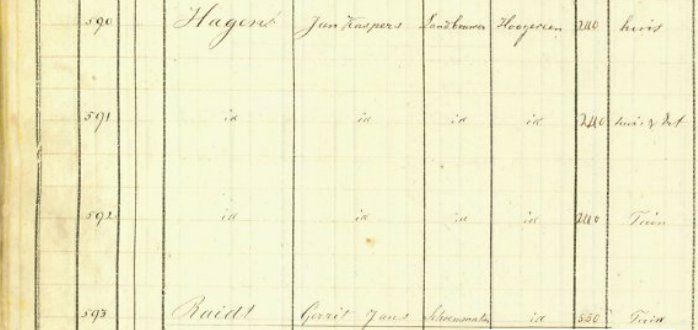 590 Hagens Jan Kaspers Landbouwer Hoogeveen 240 huis
591 id id id id 240 huis & Erf
592 id id id id 240 Tuin
593 Raidt Gerrit Jans Schoenmaker id 550 Tuin